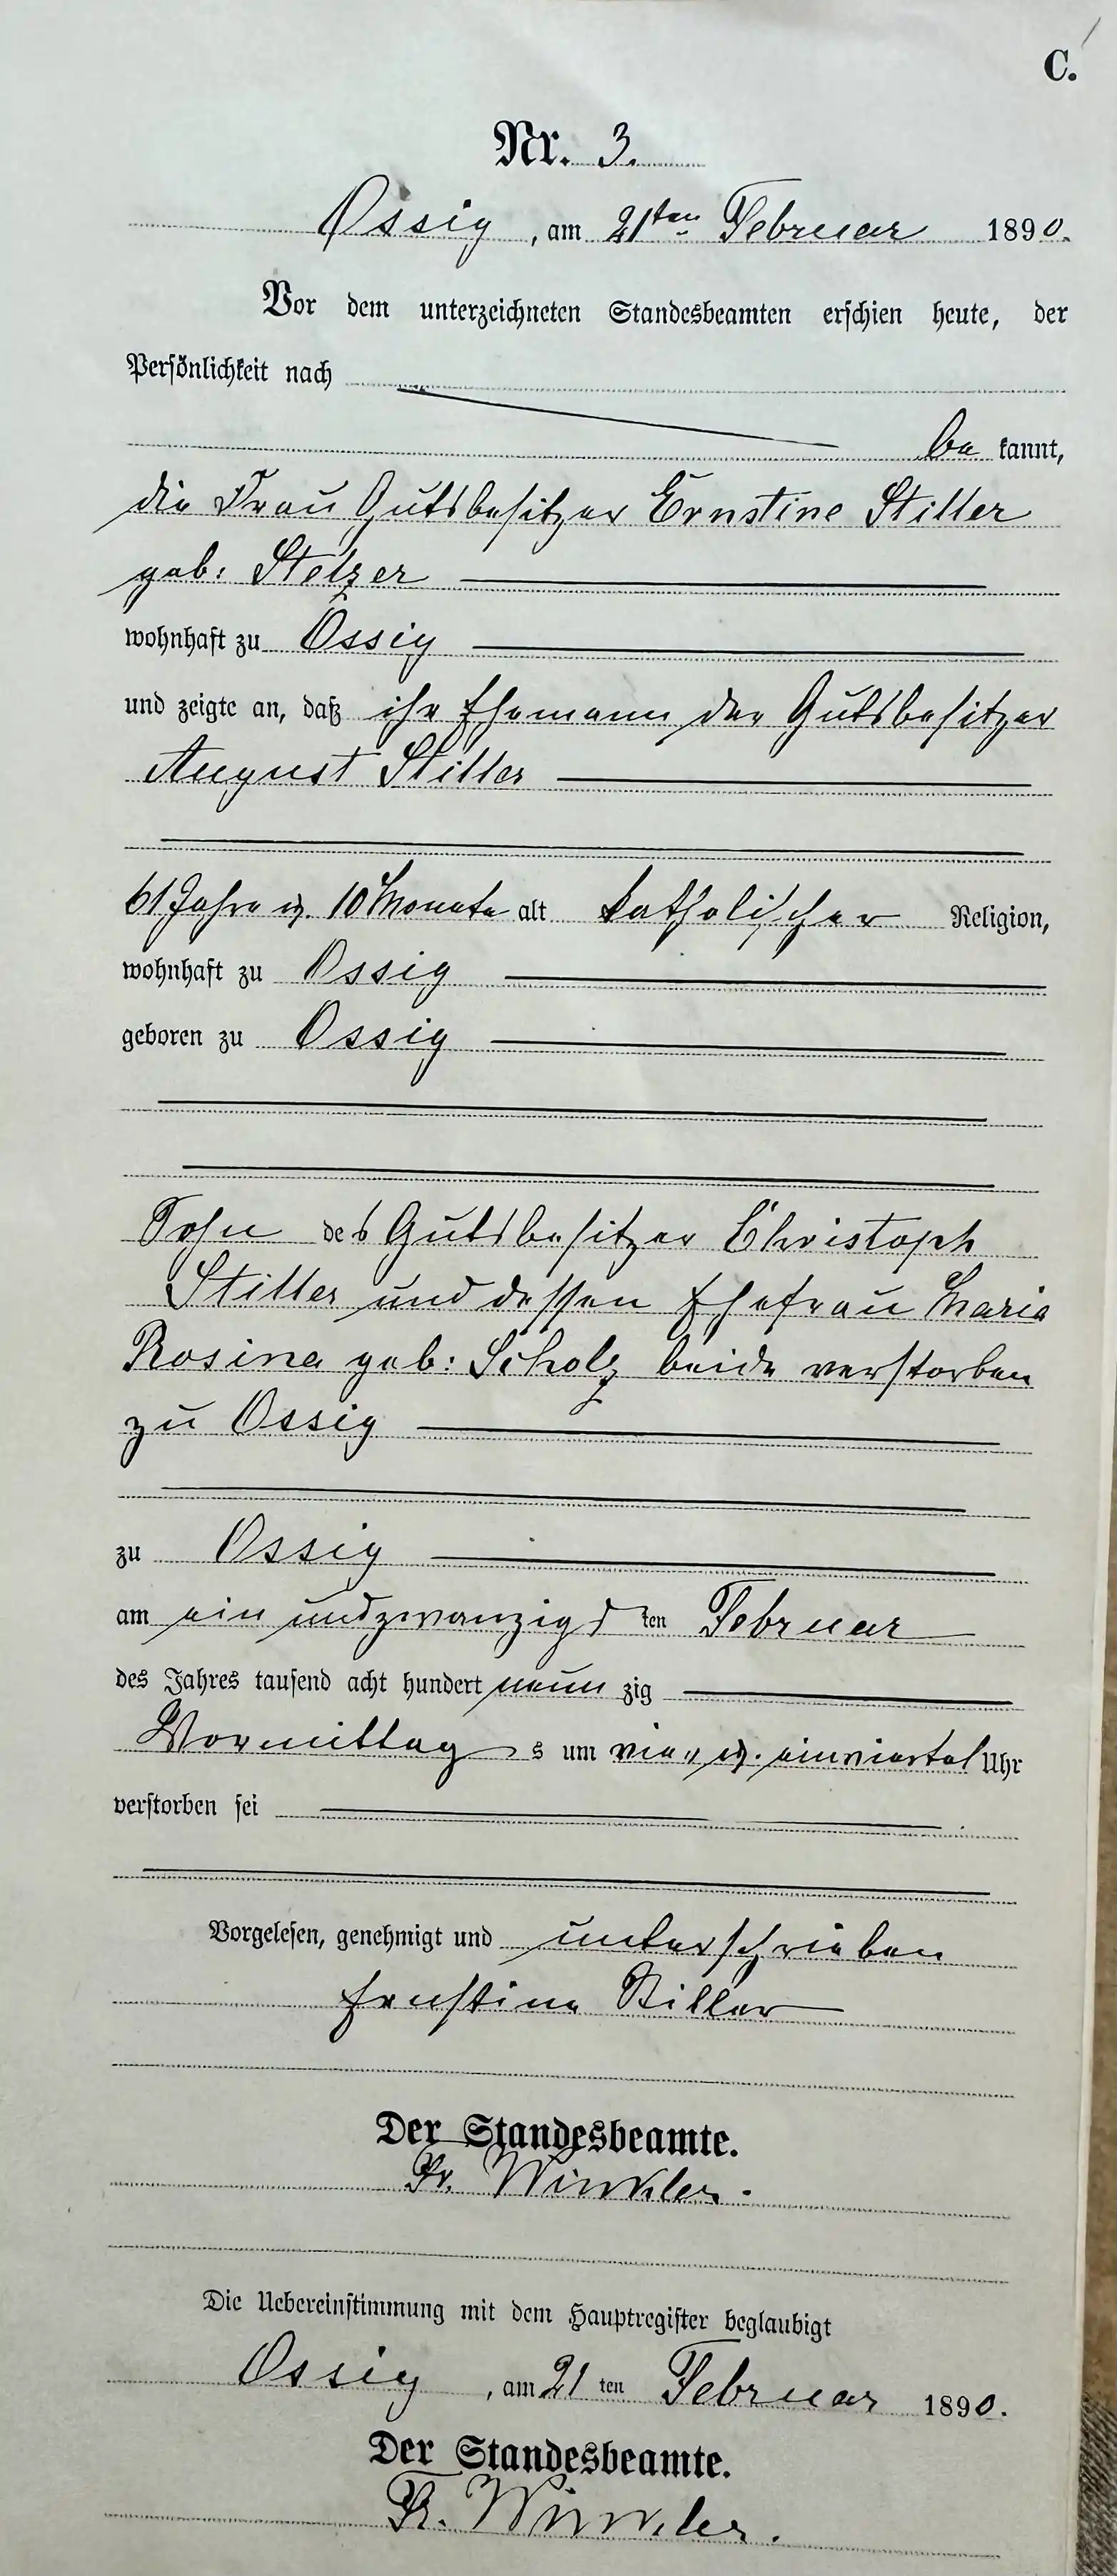 C.
Nr. 3.
Ossig, am 21ten Februar 1890.
Vor dem unterzeichneten Standesbeamten erschien heute, der
Persönlichkeit nach
be kannt,
die Frau Gutsbesitzer Ernstine Stiller
geb: Stelzer
wohnhaft zu Ossig
und zeigte an, daß ihr Ehemann der Gutsbesitzer
August Stiller
61 Jahre u. 10 Monate alt katholischer Religion,
wohnhaft zu Ossig
geboren zu Ossig
Sohn des Gutsbesitzer Christoph
Stiller und dessen Ehefrau Maria
Rosina geb: Scholz beide verstorben
zu Ossig
zu Ossig
am ein undzwanzigs ten Februar
des Jahres tausend acht hundert neun zig
Vormittag s um vier u. einviertel Uhr
verstorben sei
Vorgelesen, genehmigt und unterschrieben
Ernstine Stiller
Der Standesbeamte.
Fr. Winkler.
Die Uebereinstimmung mit dem Hauptregister beglaubigt
Ossig, am 21 ten Februar 1890.
Der Standesbeamte.
Fr. Winkler.